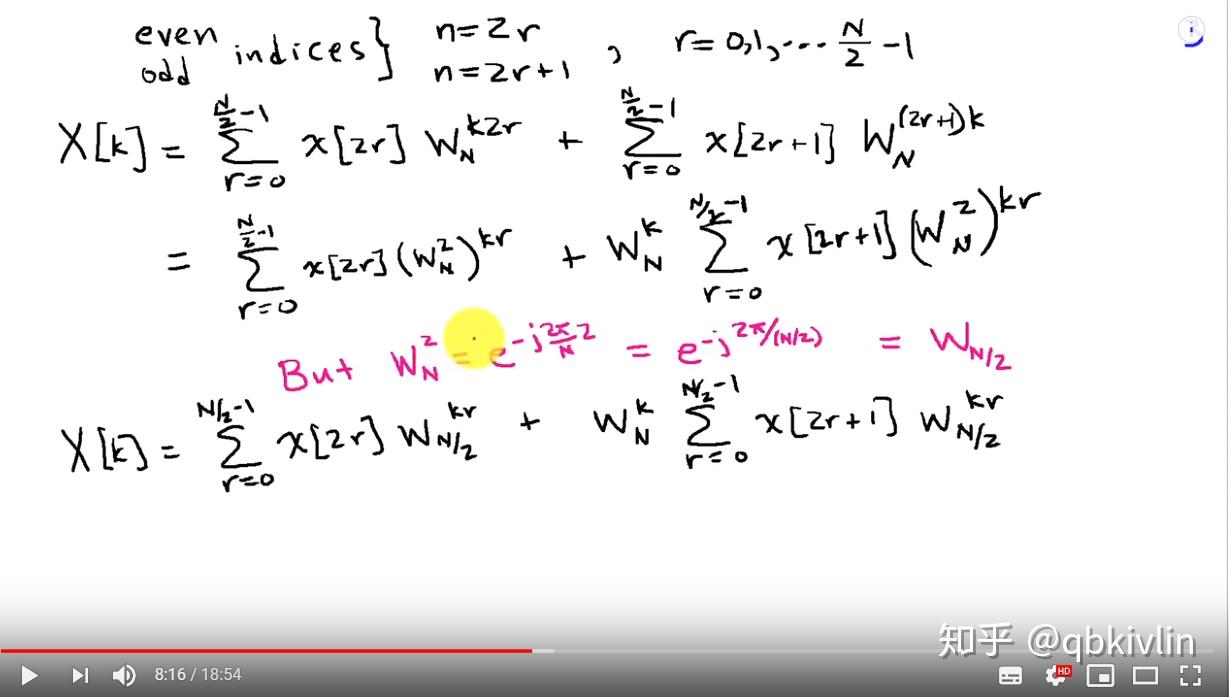 even
odd indices} n=2r
n=2r+1 , r=0,1,... N/2 -1
X[k] = ∑_{r=0}^{N/2-1} x[2r] W_N^{k2r} + ∑_{r=0}^{N/2-1} x[2r+1] W_N^{(2r+1)k}
= ∑_{r=0}^{N/2-1} x[2r] (W_N^2)^{kr} + W_N^k ∑_{r=0}^{N/2-1} x[2r+1] (W_N^2)^{kr}
But W_N^2 = e^{-j 2π/N 2} = e^{-j 2π/(N/2)} = W_{N/2}
X[k] = ∑_{r=0}^{N/2-1} x[2r] W_{N/2}^{kr} + W_N^k ∑_{r=0}^{N/2-1} x[2r+1] W_{N/2}^{kr}
知乎 @qbkivlin
8:16 / 18:54
HD